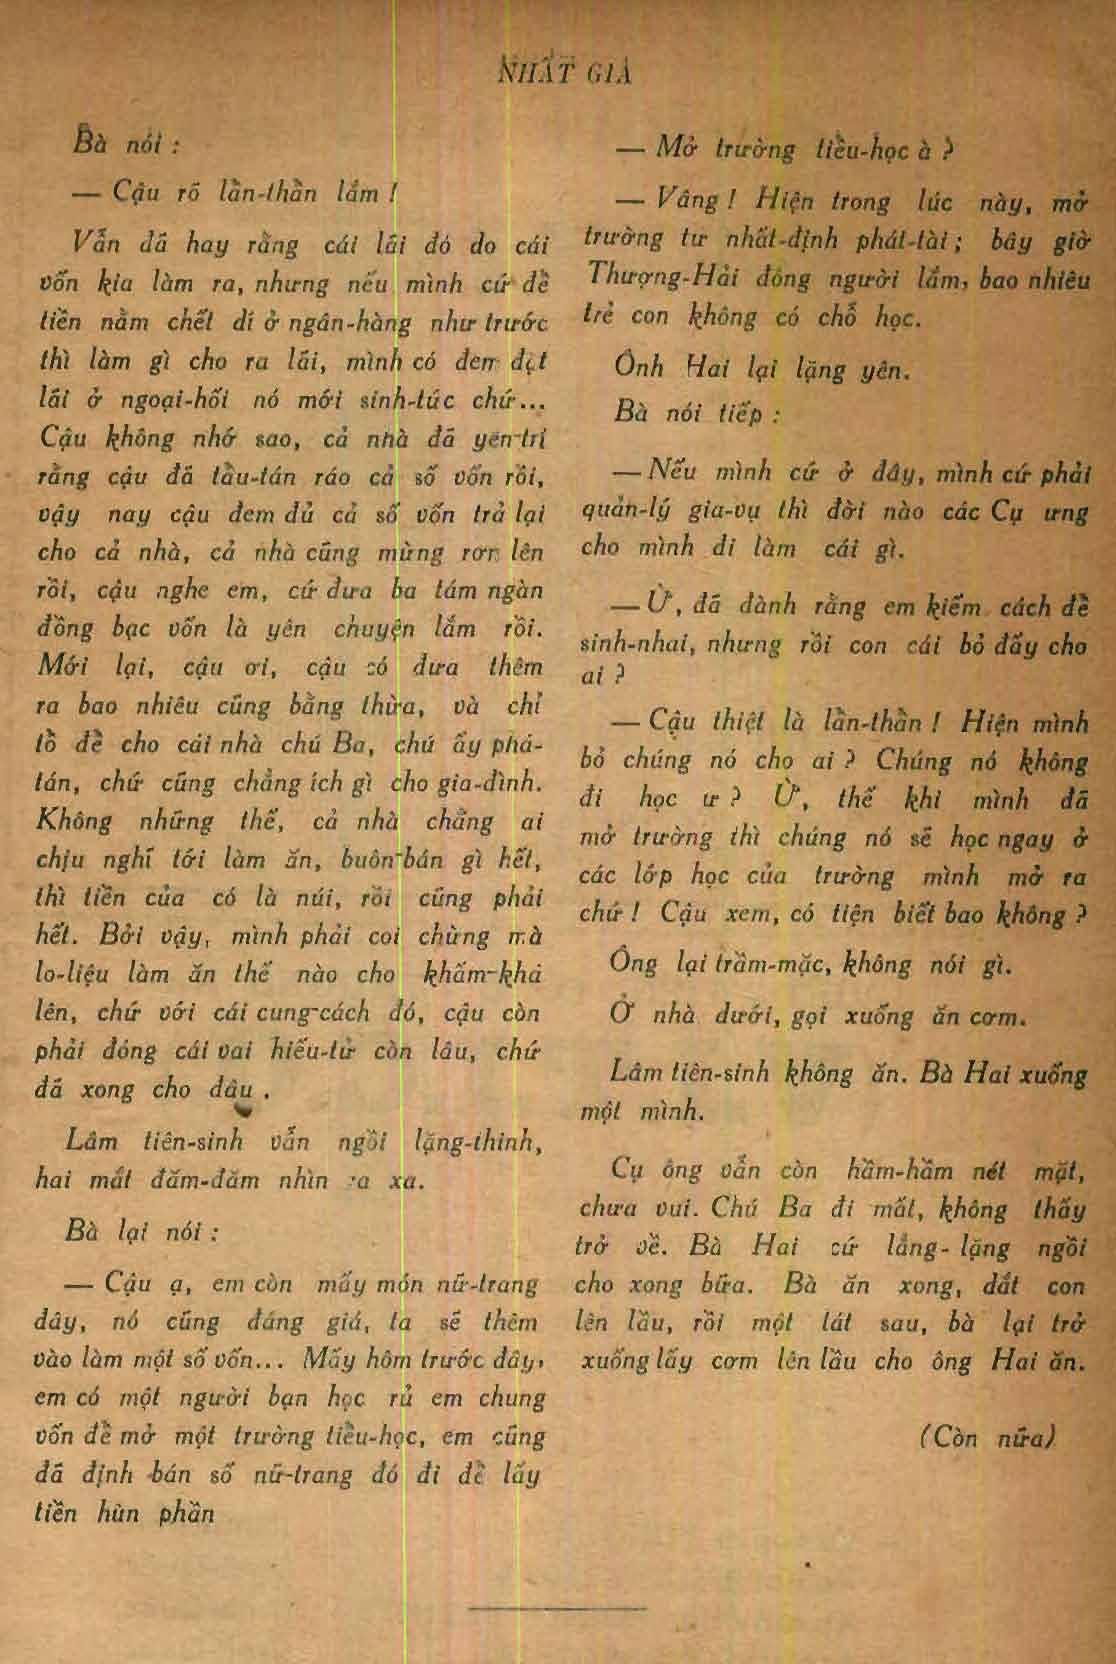 NHẤT GIA
Bà nói :
— Cậu rõ lần-thần lắm !
Vẫn đã hay rằng cái lãi đó do cái
vốn kia làm ra, nhưng nếu mình cứ để
tiền nằm chết dí ở ngân-hàng như trước
thì làm gì cho ra lãi, mình có đem đặt
lãi ở ngoại-hối nó mới sinh-túc chứ...
Cậu không nhớ sao, cả nhà đã yên-trí
rằng cậu đã tầu-tán ráo cả số vốn rồi,
vậy nay cậu đem đủ cả số vốn trả lại
cho cả nhà, cả nhà cũng mừng rơn lên
rồi, cậu nghe em, cứ đưa ba tám ngàn
đồng bạc vốn là yên chuyện lắm rồi.
Mới lại, cậu ơi, cậu có đưa thêm
ra bao nhiêu cũng bằng thừa, và chỉ
tồ để cho cái nhà chú Ba, chú ấy phá-
tán, chứ cũng chẳng ích gì cho gia-đình.
Không những thế, cả nhà chẳng ai
chịu nghĩ tới làm ăn, buôn-bán gì hết,
thì tiền của có là núi, rồi cũng phải
hết. Bởi vậy, mình phải coi chừng mà
lo-liệu làm ăn thế nào cho khấm-khá
lên, chứ với cái cung-cách đó, cậu còn
phải đóng cái vai hiếu-tử còn lâu, chứ
đã xong cho đâu .
Lâm tiên-sinh vẫn ngồi lặng-thinh,
hai mắt đăm-đăm nhìn ra xa.
Bà lại nói :
— Cậu ạ, em còn mấy món nữ-trang
đây, nó cũng đáng giá, ta sẽ thêm
vào làm một số vốn... Mấy hôm trước đây,
em có một người bạn học rủ em chung
vốn để mở một trường tiểu-học, em cũng
đã định bán số nữ-trang đó đi để lấy
tiền hùn phần
— Mở trường tiểu-học à ?
— Vâng ! Hiện trong lúc này, mở
trường tư nhất-định phát-tài ; bây giờ
Thượng-Hải đông người lắm, bao nhiêu
trẻ con không có chỗ học.
Ônh Hai lại lặng yên.
Bà nói tiếp :
— Nếu mình cứ ở đây, mình cứ phải
quản-lý gia-vụ thì đời nào các Cụ ưng
cho mình đi làm cái gì.
— Ừ, đã đành rằng em kiếm cách để
sinh-nhai, nhưng rồi con cái bỏ đấy cho
ai ?
— Cậu thiệt là lần-thần ! Hiện mình
bỏ chúng nó cho ai ? Chúng nó không
đi học ư ? Ừ, thế khi mình đã
mở trường thì chúng nó sẽ học ngay ở
các lớp học của trường mình mở ra
chứ ! Cậu xem, có tiện biết bao không ?
Ông lại trầm-mặc, không nói gì.
Ở nhà dưới, gọi xuống ăn cơm.
Lâm tiên-sinh không ăn. Bà Hai xuống
một mình.
Cụ ông vẫn còn hầm-hầm nét mặt,
chưa vui. Chú Ba đi mất, không thấy
trở về. Bà Hai cứ lẳng-lặng ngồi
cho xong bữa. Bà ăn xong, dắt con
lên lầu, rồi một lát sau, bà lại trở
xuống lấy cơm lên lầu cho ông Hai ăn.
(Còn nữa)